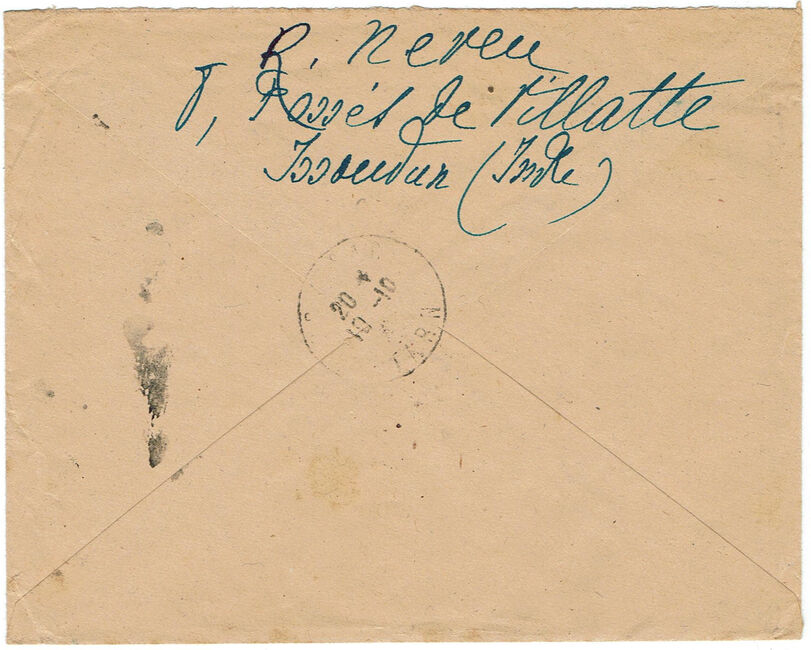 R. Neveu
8, Fossés de Villatte
Issoudun (Indre)
20 *
10 -10
TARN